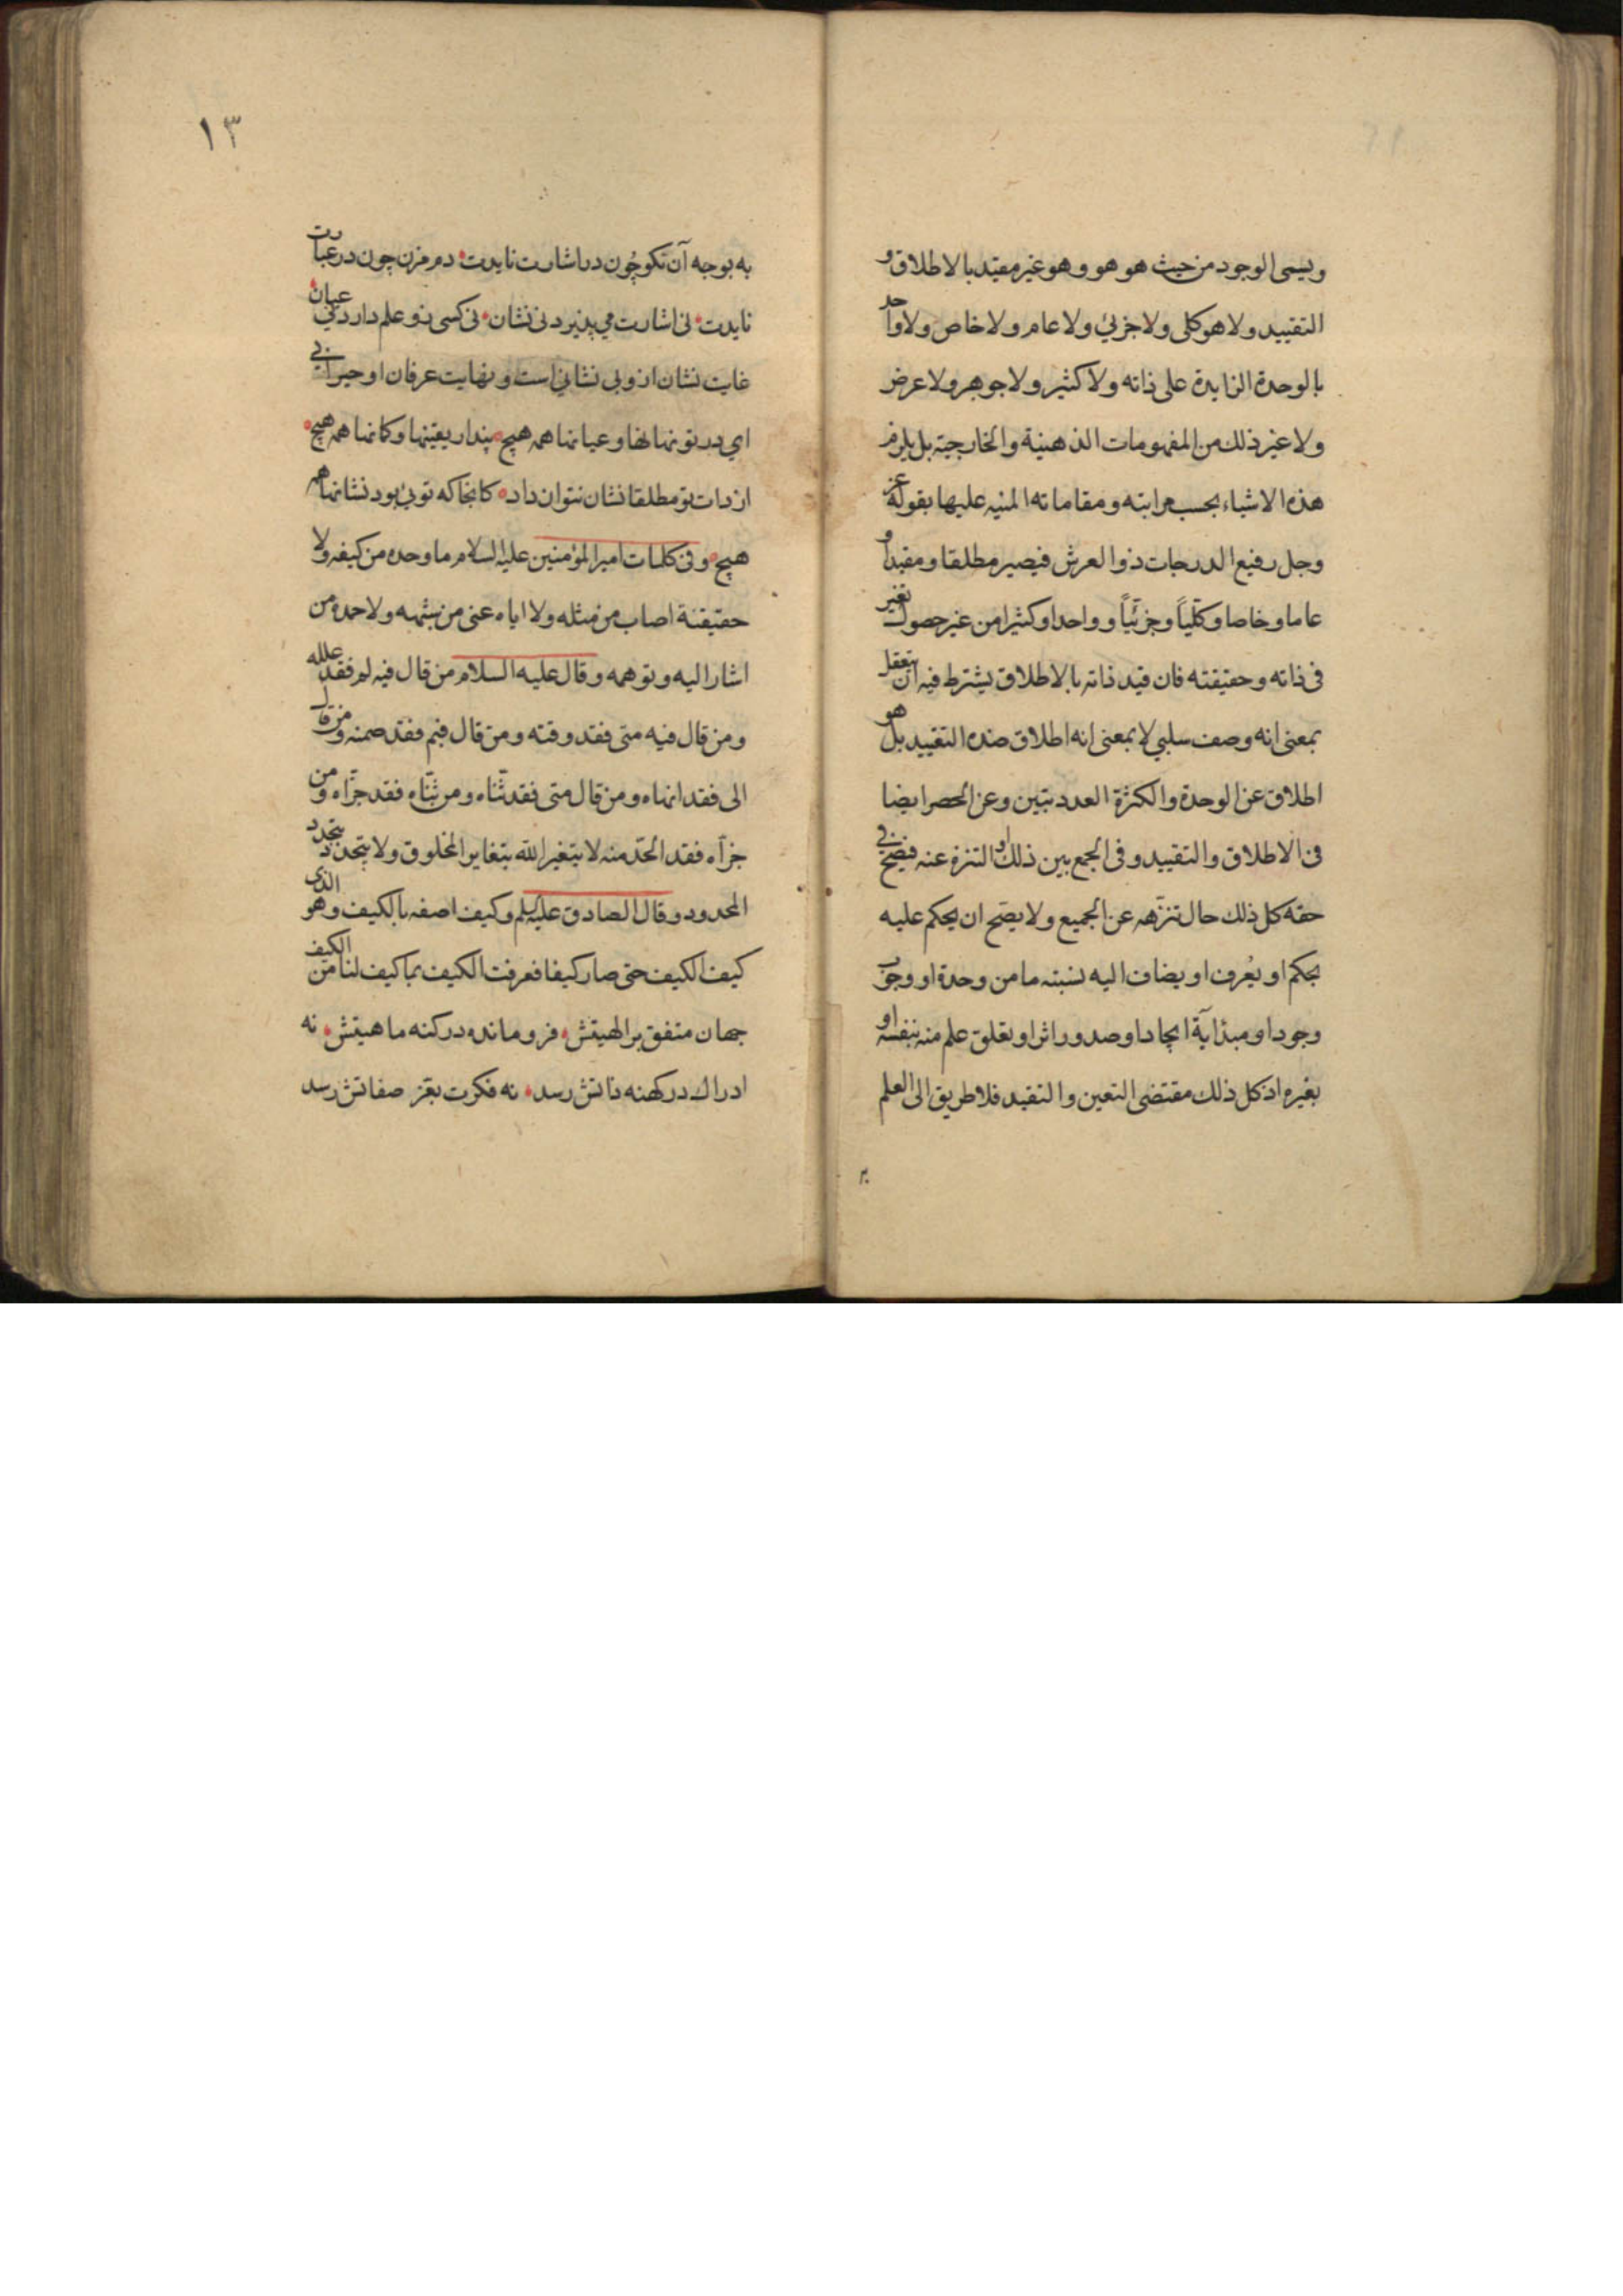 ويسمى الوجود من حيث هو هو وهو غير مقيد بالاطلاق و
التقييد ولا هو كلى ولا جزئي ولا عام ولا خاص ولا واحد
بالوحدة الزايدة على ذاته ولا كثير ولا جوهر ولا عرض
ولا غير ذلك من المفهومات الذهنية والخارجية بل يلزم
هذه الاشياء بحسب مراتبه ومقاماته المنبه عليها بقوله عز
وجل رفيع الدرجات ذو العرش فيصير مطلقا ومقيدا و
عاما وخاصا وكليّاً وجزئيّاً وواحدا وكثيرا من غير حصول تغير
فى ذاته وحقيقته فان قيد ذاته بالاطلاق يشترط فيه ان يتعقل
بمعنى انه وصف سلبي لا بمعنى انه اطلاق ضده التقييد بل هو
اطلاق عن الوحدة والكثرة العدديتين وعن الحصر ايضا
فى الاطلاق والتقييد وفى الجمع بين ذلك او التنزه عنه فيصح فى
حقه كل ذلك حال تنزّهه عن الجميع ولا يصح ان يحكم عليه
بحكم او يُعرف او يضاف اليه نسبته ما من وحدة او وجوب
وجود او مبدأيّة ايجاد او صدور اثر او تعلق علم منه بنفسه او
بغيره اذ كل ذلك مقتضى التعين والتقيد فلا طريق الى العلم
١٣
به بوجه آن نكو چُون در اشارت نايدت دم مزن چون در عبارت
نايدت نى اشارت مي پذيرد نى نشان نى كسى زو علم دارد نى عيان
غايت نشان از وبى نشاني است ونهايت عرفان او حيرانى
اي در تو نهانها وعيانها همه هيچ پندار يقينها وكمانها همه هيچ
از ذات تو مطلقا نشان نتوان داد كانجا كه توئى بود نشانها همه
هيچ وفى كلمات امير المؤمنين عليه السلام ما وحده من كيفه ولا
حقيقته اصاب من مثله ولا اياه عنى من شبهه ولا حمده من
اشار اليه وتوهمه وقال عليه السلام من قال فيه لم فقد علله
ومن قال فيه متى فقد وقته ومن قال فيم فقد ضمنه ومن قال
الى فقد انهاه ومن قال متى فقد ثنّاه ومن ثنّاه فقد جزّاه ومن
جزآه فقد الحد منه لا يتغير الله بتغاير المخلوق ولا يتحدد بتحدد
المحدود وقال الصادق عليه السلم وكيف اصفه بالكيف وهو الذى
كيف الكيف حتى صار كيفا فعرفت الكيف بما كيف لنا من الكيف
جهان متفق بر الهيتش فرو مانده در كنه ماهيتش نه
ادراك در كهنه ذاتش رسد نه فكرت بقعر صفاتش رسد